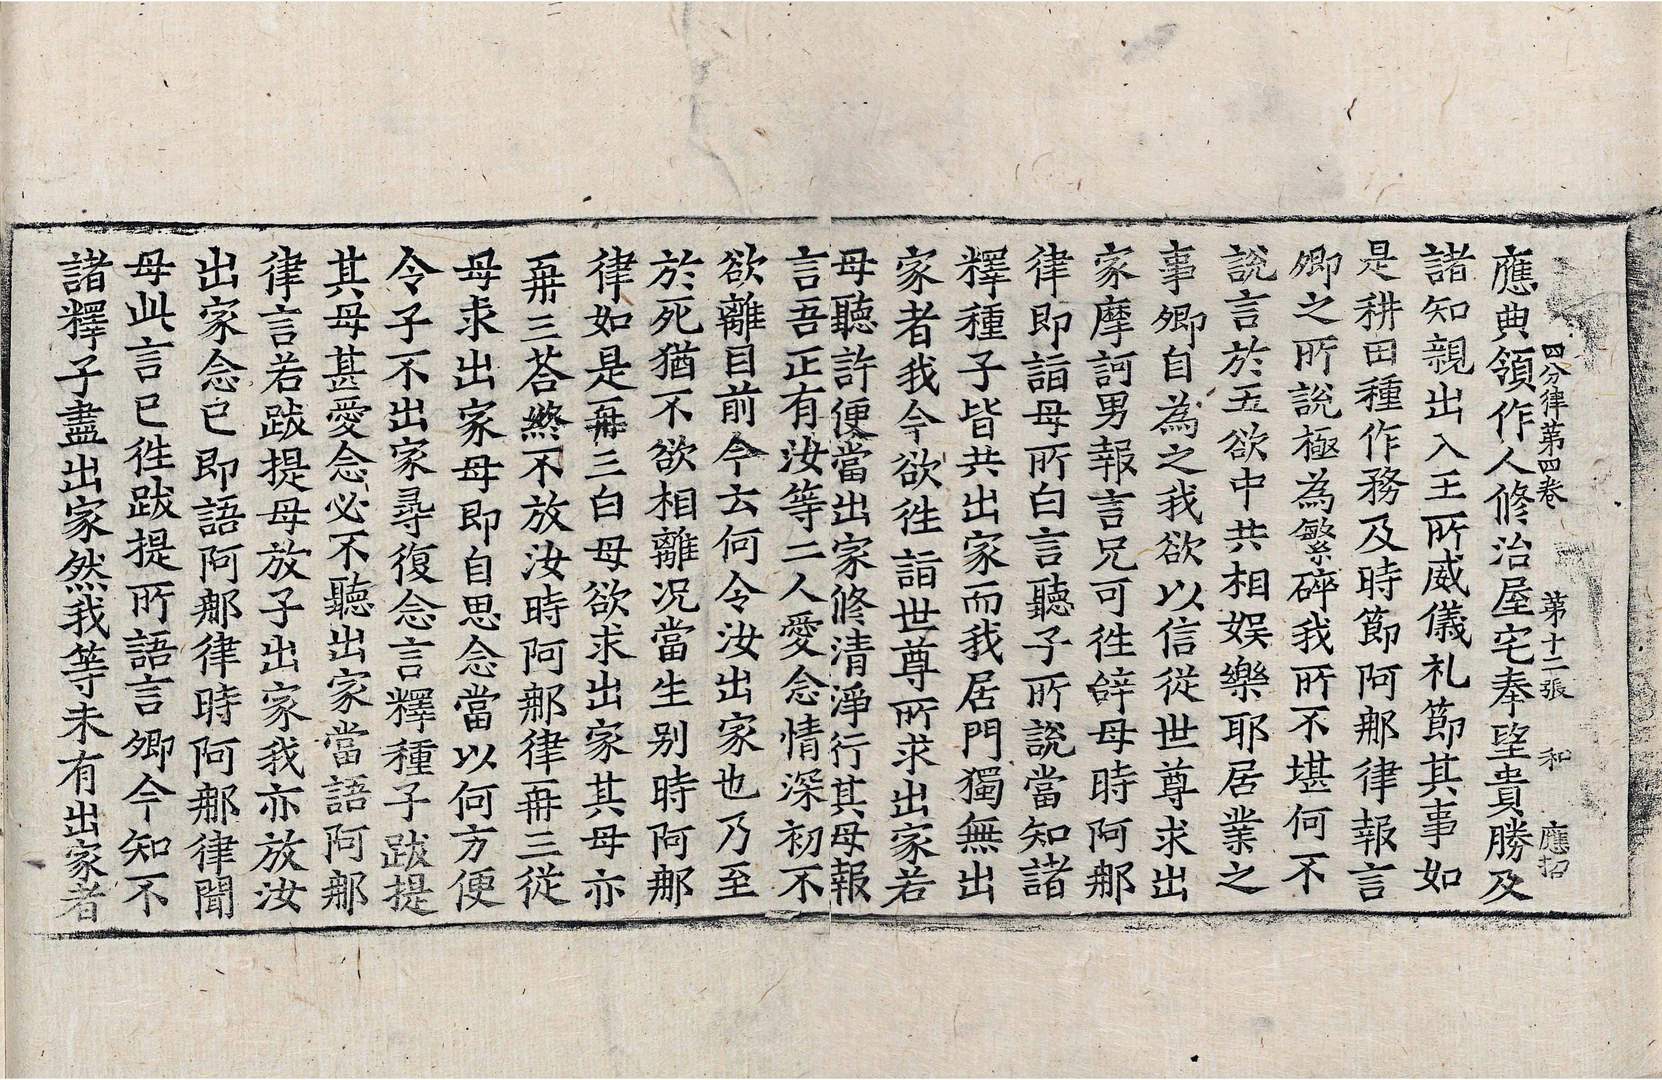 四分律第四卷 第十二張 和 應招
應典領作人修治屋宅奉望貴勝及
諸知親出入王所威儀礼節其事如
是耕田種作務及時節阿那律報言
卿之所說極為繁碎我所不堪何不
說言於五欲中共相娛樂耶居業之
事卿自為之我欲以信從世尊求出
家摩訶男報言兄可往辝母時阿那
律即詣母所白言聽子所說當知諸
釋種子皆共出家而我居門獨無出
家者我今欲往詣世尊所求出家若
母聽許便當出家修清淨行其母報
言吾正有汝等二人愛念情深初不
欲離目前今云何令汝出家也乃至
於死猶不欲相離况當生別時阿那
律如是再三白母欲求出家其母亦
再三荅終不放汝時阿那律再三從
母求出家母即自思念當以何方便
令子不出家尋復念言釋種子跋提
其母甚愛念必不聽出家當語阿那
律言若跋提母放子出家我亦放汝
出家念已即語阿那律時阿那律聞
母此言已往跋提所語言卿今知不
諸釋子盡出家然我等未有出家者